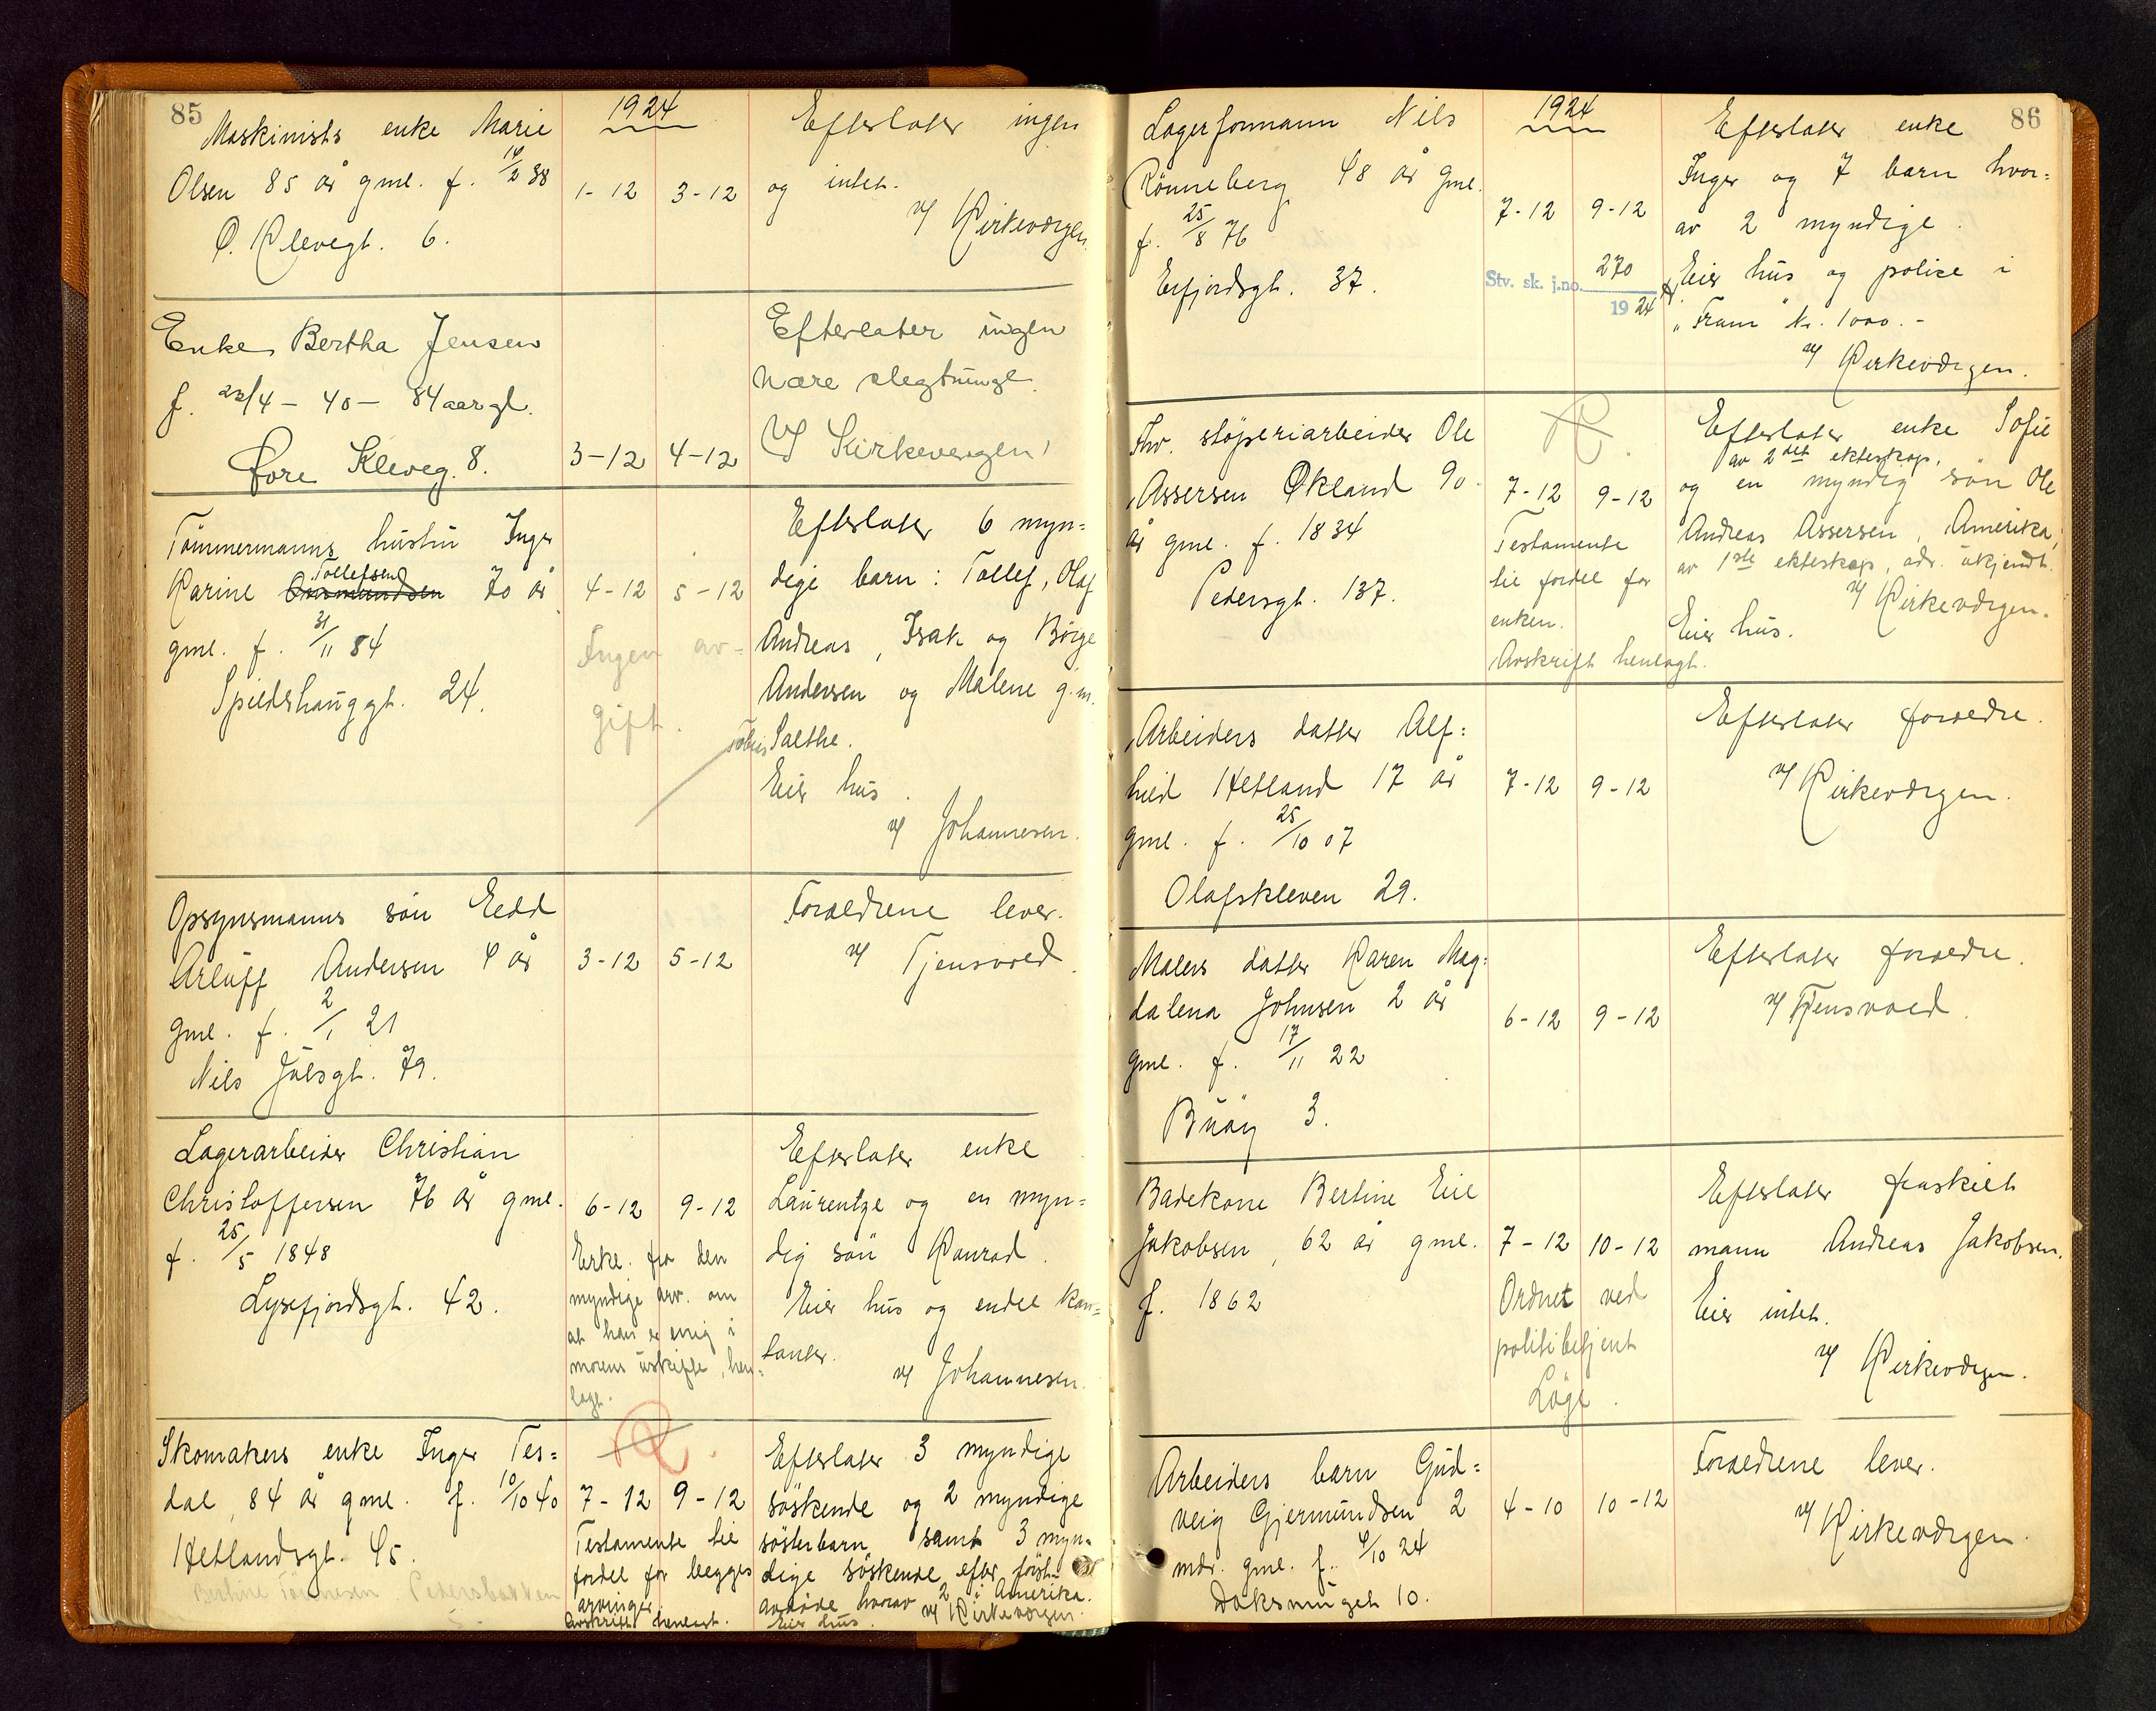 85
1924
Maskinists enke Marie
Olsen 85 år gml. f. 14/2 38
Ø. Klevegt. 6.
1-12 3-12
Efterlater ingen
og intet.
v/ Kirkeværgen.
Enke Bertha Jensen
f. 22/4 - 40 - 84 aar gl.
Øvre Kleveg. 8.
3-12 4-12
Efterlater ingen
nære slegtninge.
v/ Kirkevergen.
Tømmermanns hustru Inger
Karine Tollefsen 70 år
gml. f. 31/11 54
Spilderhauggt. 24.
4-12 5-12
Ingen av-
gift.
Efterlater 6 myn=
dige barn: Tollef, Olaf
Andreas, Isak og Børge
Andersen og Malene g.m.
Tobias Salthe.
Eier hus.
v/ Johannesen.
Opsynsmanns søn Eedd
Arluff Andersen 4 år
gml. f. 2/1 21
Nils Juelsgt. 79.
3-12 5-12
Forældrene lever.
v/ Tjensvold.
Lagerarbeider Christian
Christoffersen 76 år gml.
f. 25/5 1848
Lysefjordsgt. 42.
6-12 9-12
Erkl. fra den
myndige arv. om
at han er enig i
morens uskifte, hen-
lagt.
Efterlater enke
Laurentze og en myn=
dig søn Konrad.
Eier hus og endel kon=
tanter.
v/ Johannesen.
Skomakers enke Inger Tes=
dal, 84 år gml. f. 10/10 40
Hetlandsgt. 45.
Pedersbakken
7-12 9-12
Testamente til
fordel for begges
arvinger.
Avskrift henlagt.
Efterlater 3 myndige
søskende og 2 myndige
søsterbarn samt 3 myn=
dige søskende efter først
avdøde hvorav 2 i Amerika.
Eier hus. v/ Kirkeværgen.
86
1924
Lagerformann Nils
Rønneberg 48 år gml.
f. 25/8 76
Erfjordsgt. 37.
7-12 9-12
Stv. sk. j.no. 270
1924
Efterlater enke
Inger og 7 barn hvor=
av 2 myndige.
Eier hus og police i
"Fram" kr. 1000.-
v/ Kirkeværgen.
Fhv. støperiarbeider Ole
Assersen Økland 90
år gml. f. 1834
Pedersgt. 137.
7-12 9-12
Testamente
til fordel for
enken.
Avskrift henlagt.
Efterlater enke Sofie
av 2det ekteskap,
og en myndig søn Ole
Andreas Assersen, Amerika,
av 1ste ekteskap, adr. ukjendt.
v/ Kirkeværgen.
Eier hus.
Arbeiders datter Alf=
hild Hetland 17 år
gml. f. 25/10 07
Olafskleven 29.
7-12 9-12
Efterlater forældre.
v/ Kirkeværgen.
Malers datter Karen Mag=
dalena Johnsen 2 år
gml. f. 17/11 22
Buøy 3.
6-12 9-12
Efterlater forældre.
v/ Tjensvold.
Badekone Bertine Elie
Jakobsen, 62 år gml.
f. 1862
7-12 10-12
Ordnet ved
politibetjent
Løge.
Efterlater fraskilt
mann Andreas Jakobsen.
Eier intet.
v/ Kirkeværgen.
Arbeiders barn Gud=
veig Gjermundsen 2
mdr. gml. f. 4/10 24
4-10 10-12
Forældrene lever.
v/ Kirkeværgen.